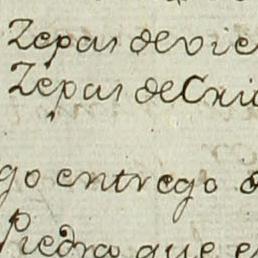 Zepas de vie
Zepas de Cri
go entrego
Piedra que e